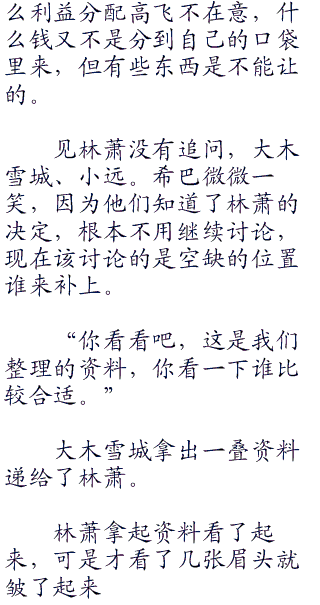 么利益分配高飞不在意，什
么钱又不是分到自己的口袋
里来，但有些东西是不能让
的。
见林萧没有追问，大木
雪城、小远。希巴微微一
笑，因为他们知道了林萧的
决定，根本不用继续讨论，
现在该讨论的是空缺的位置
谁来补上。
“你看看吧，这是我们
整理的资料，你看一下谁比
较合适。”
大木雪城拿出一叠资料
递给了林萧。
林萧拿起资料看了起
来，可是才看了几张眉头就
皱了起来